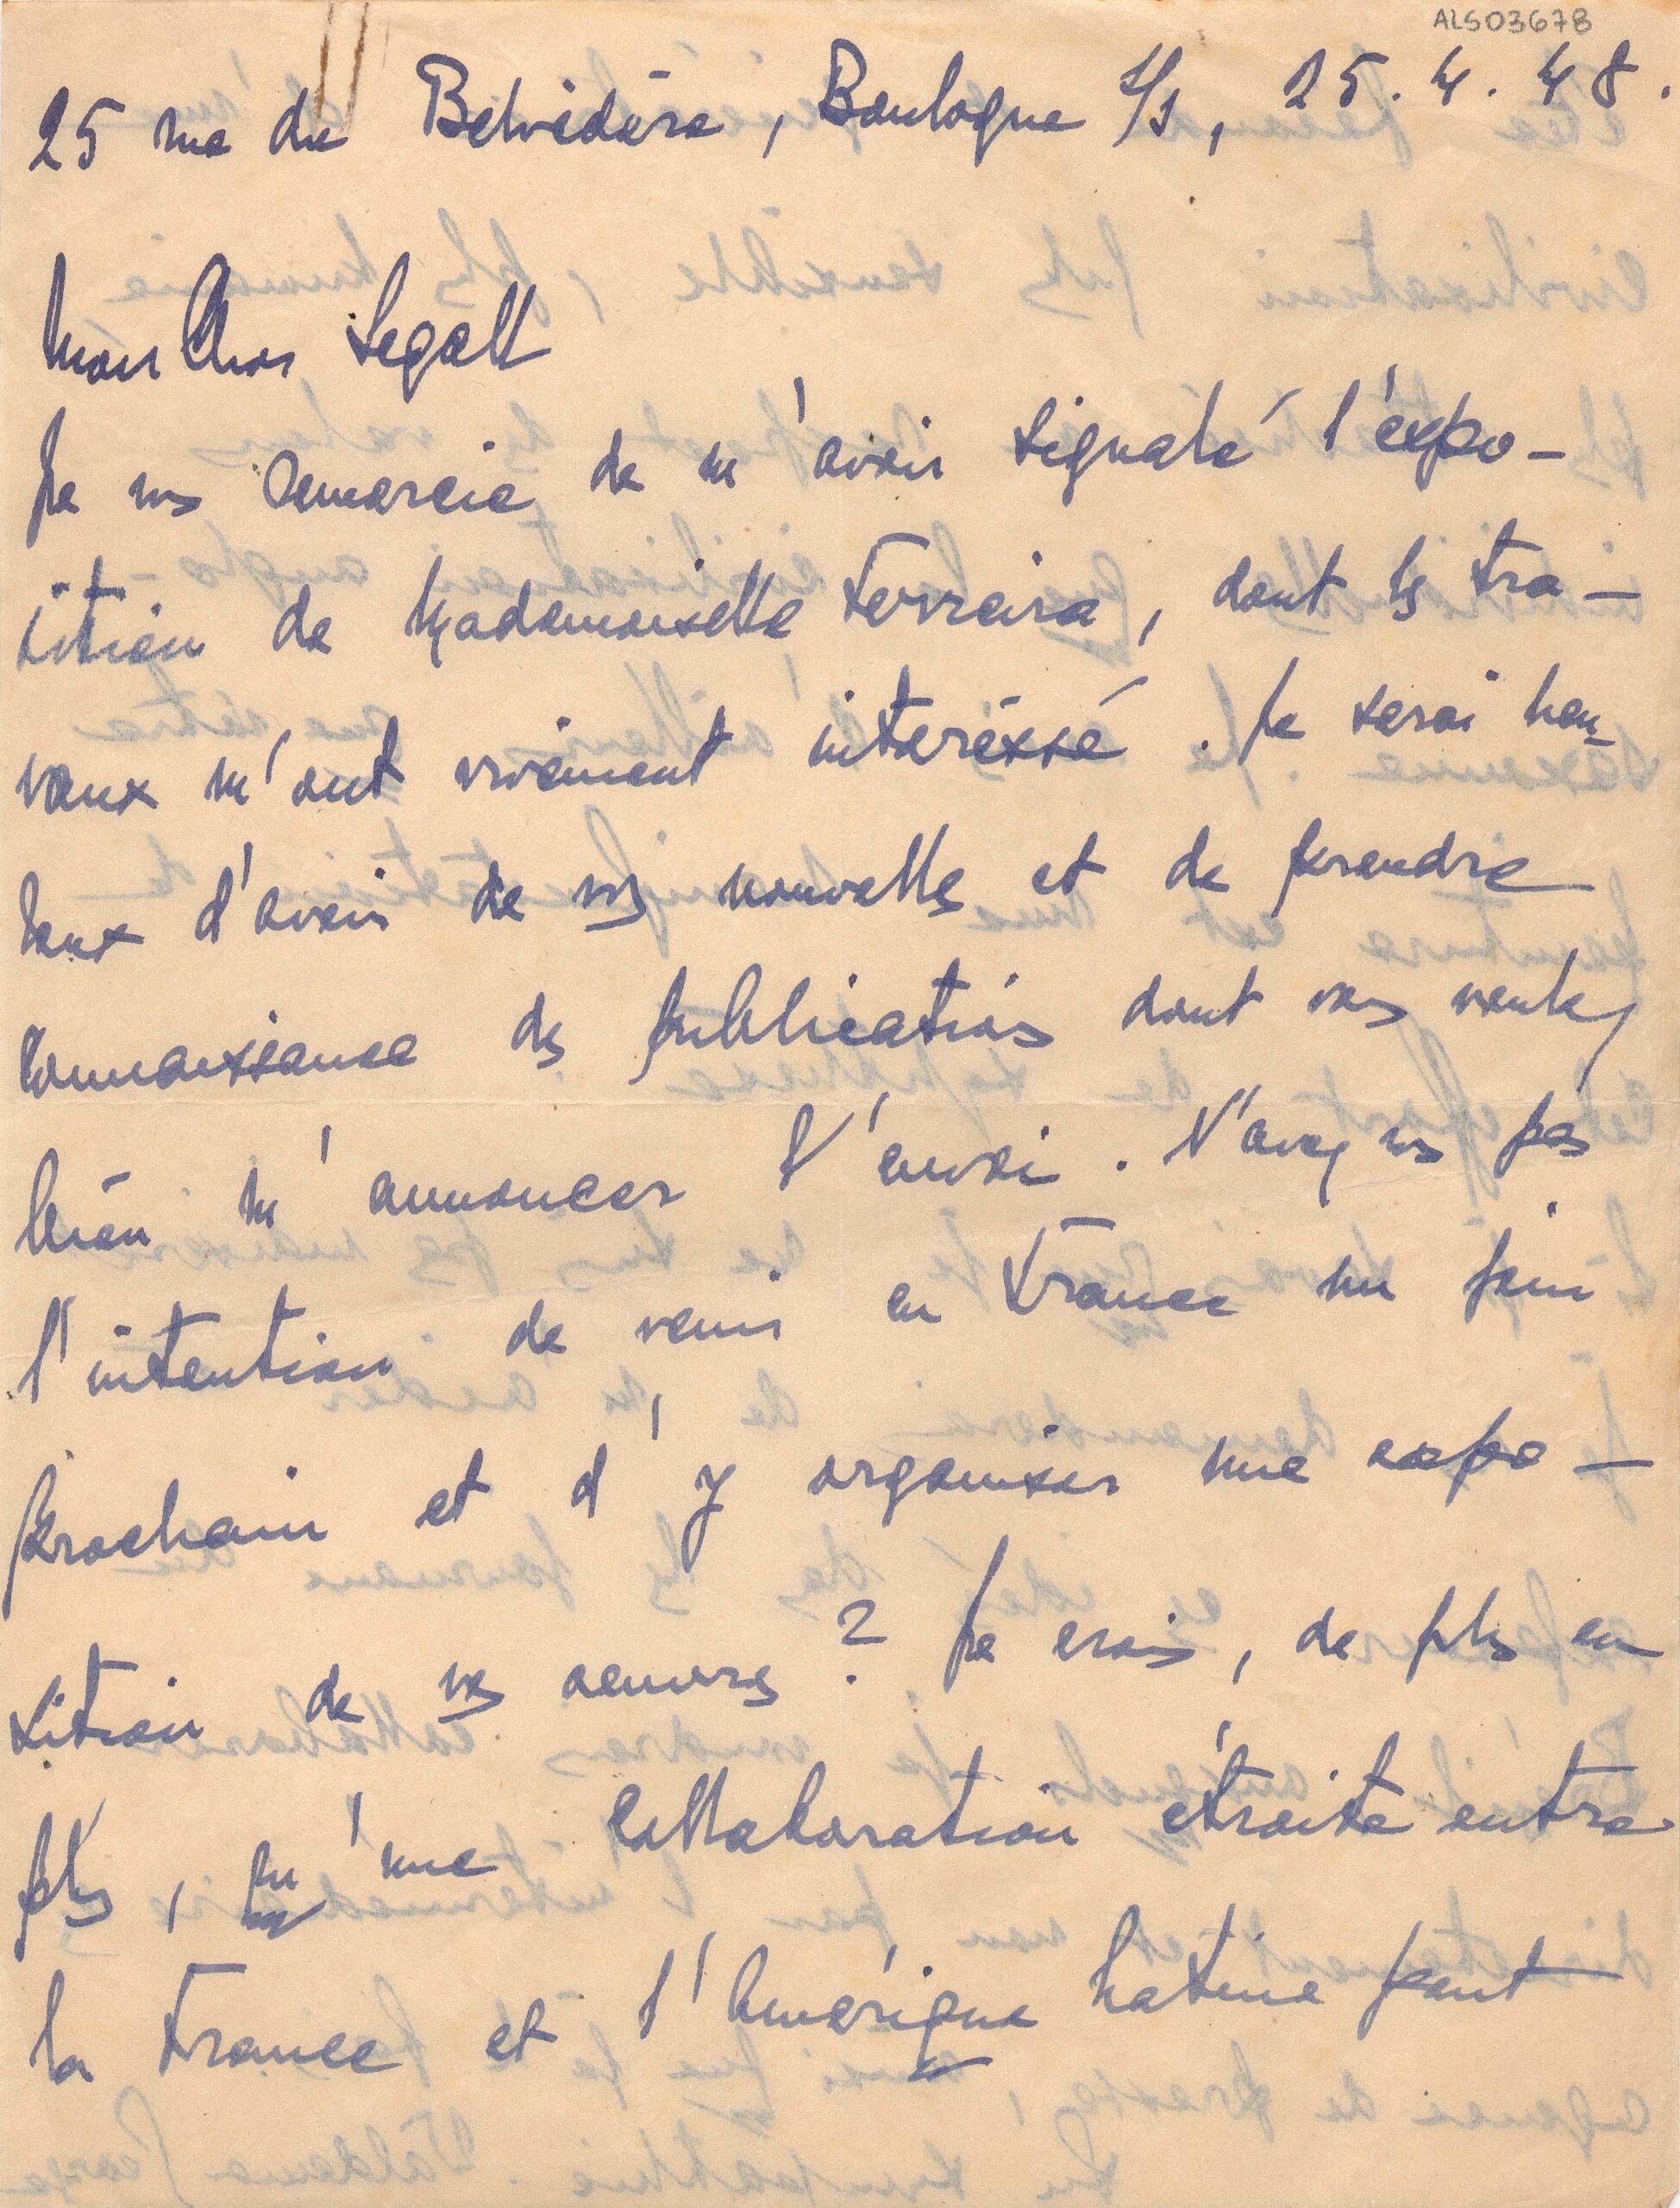 ALS03678
25 rue du Belvédère, Boulogne s/s, 25. 4. 48.
Mon Cher Segall
Je vs remercie de m'avoir signalé l'expo-
sition de Mademoiselle Ferreira, dont ls tra-
vaux m'ont vraiement interéssé. Je serai heu-
reux d'avoir de vos nouvelles et de prendre
connaissance des publications dont vous voulez
bien m'annoncer l'envoi. N'avez vs pas
l'intention de venir en France un jour
prochain et d'y organiser une expo-
sition de vos oeuvres? Je crois, de plus en
plus, qu'une collaboration étroite entre
la France et l'Amérique Latine peut